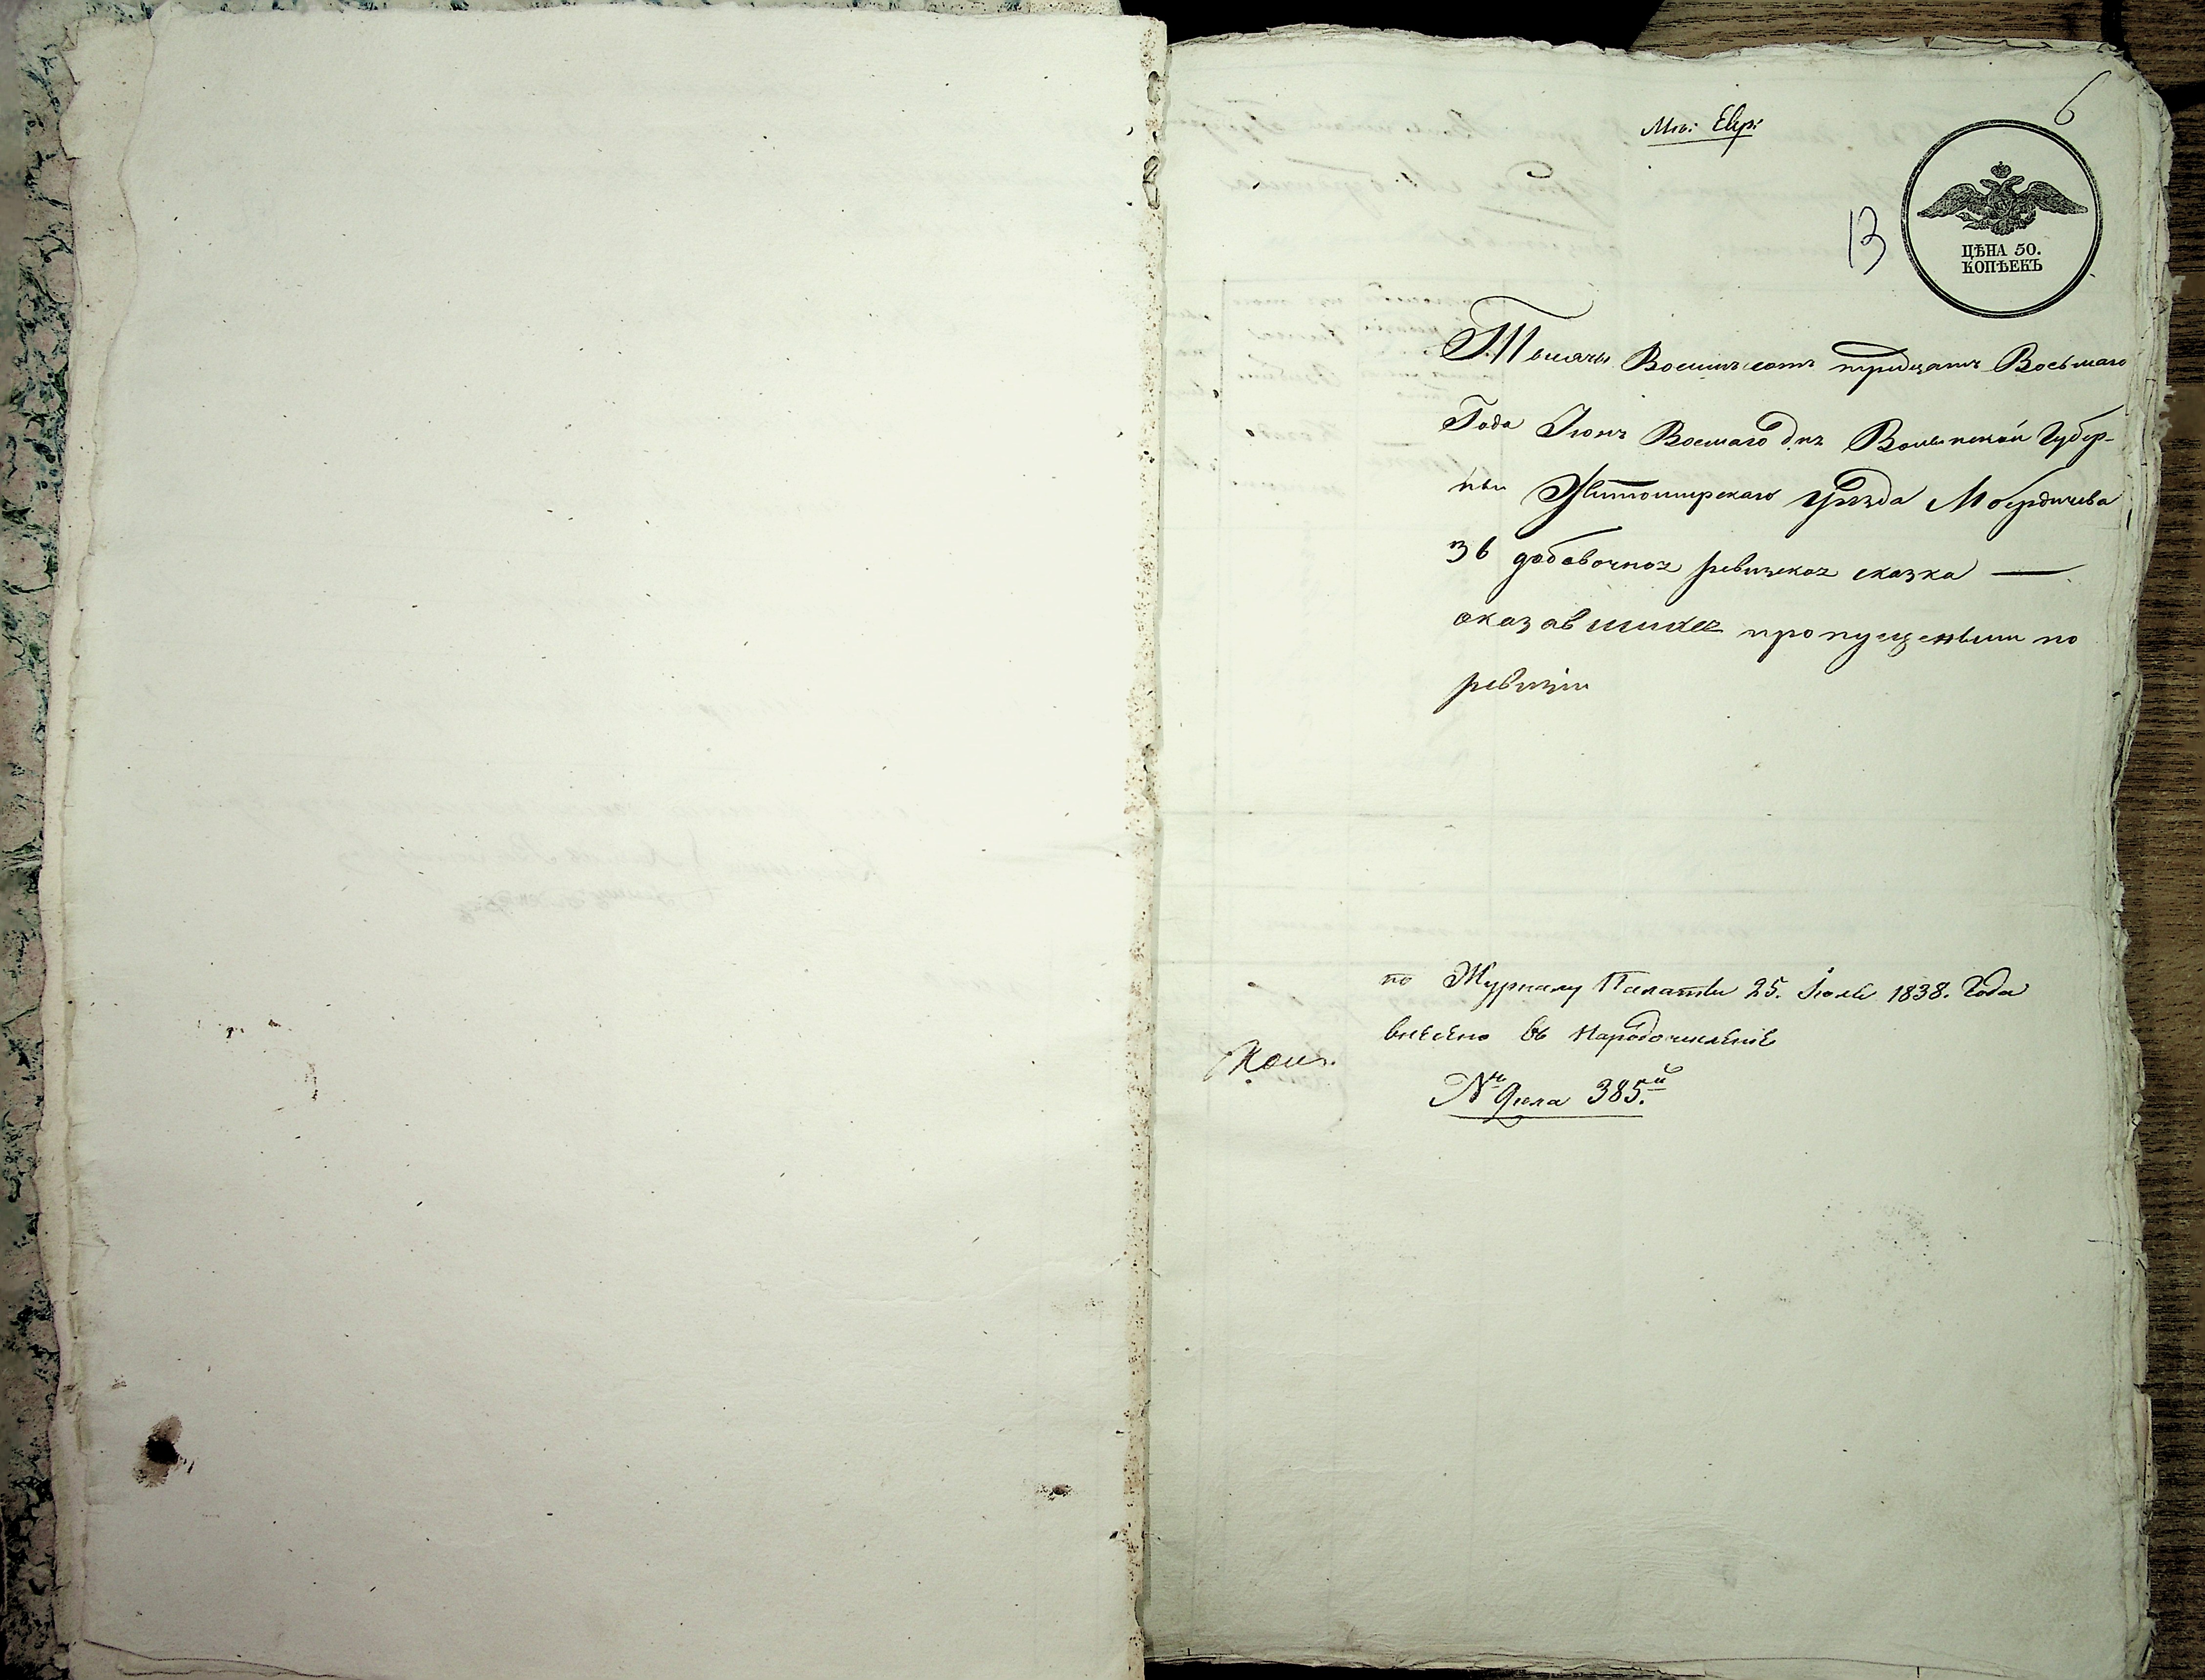 6
Мѣ: Евр:
13
ЦѢНА 50.
КОПѢЕКЪ
Тысячи Восимъсотъ тридцать Восьмаго
Года Іюнь Восмаго дня Волынской Губер-
ніи Житомирскаго уѣзда М бердичева
36 добавочноя ревизскоя сказка —
оказавшихся пропущеными по
ревизіи
по Журналу Палаты 25. Іюля 1838. Года
внесено въ Народочисленіе
№ Дела 385.й